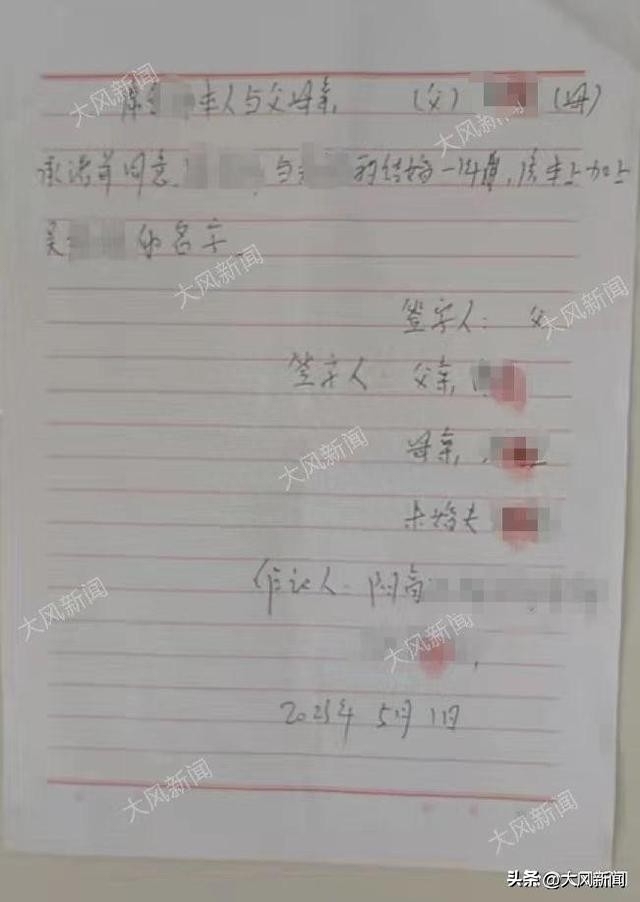 本人与父母亲 (父) (母)
承诺并同意 与 的结婚一件事, 房本上加上
吴 的名字
签字人: 父
签字人 父亲
母亲
未婚夫
作证人:
2025年 5月 1日
大风新闻
大风新闻
大风新闻
大风新闻
大风新闻
大风新闻
大风新闻
大风新闻
大风新闻
头条 @大风新闻